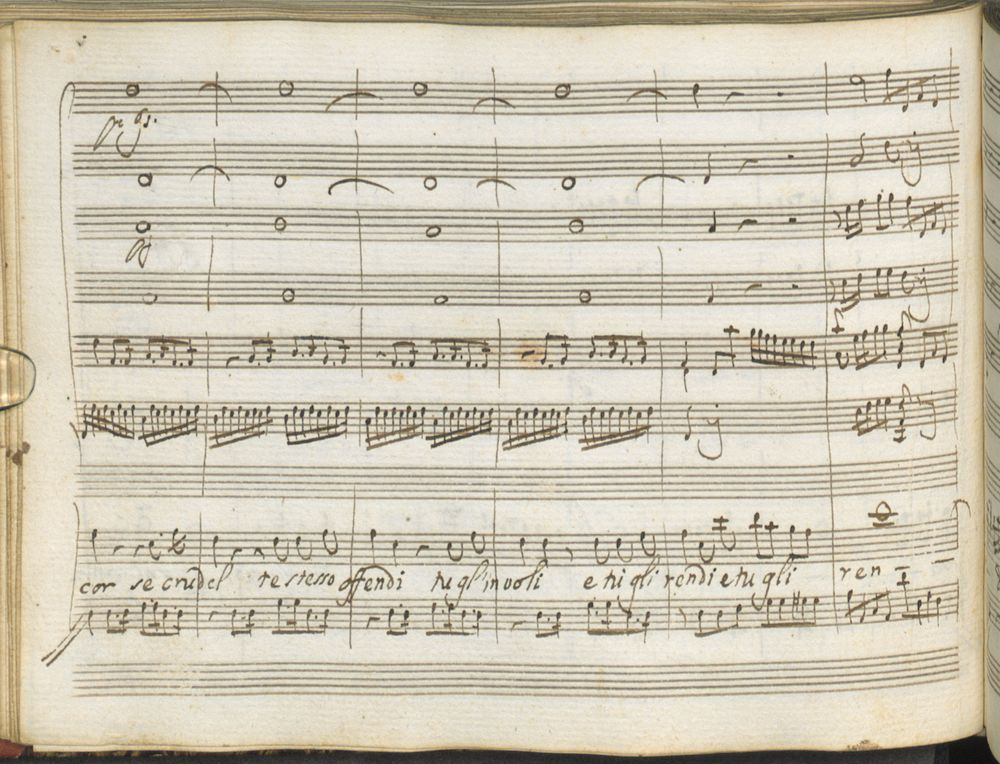 cor se crudel te stesso offendi tu gl'involi e tu gli rendi e tu gli ren -